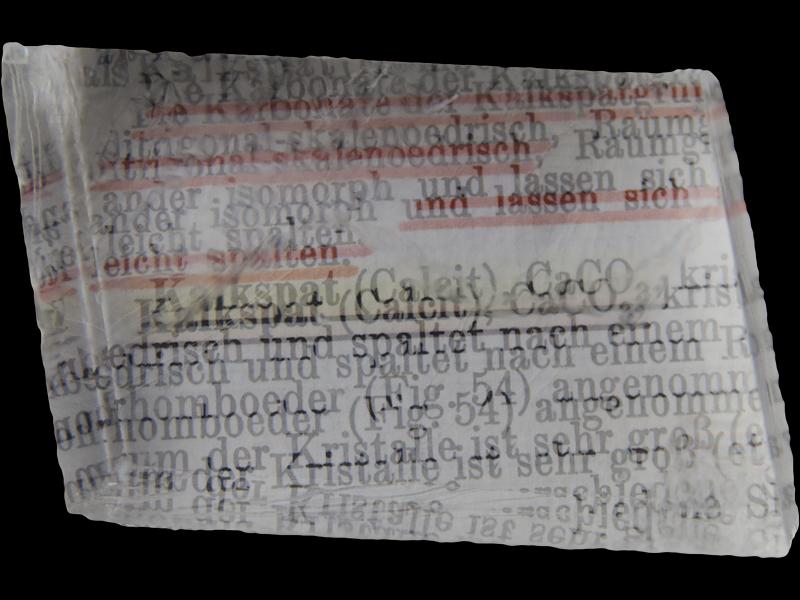 Die Karbonate der Kalkspatgru
ditrigonal-skalenoedrisch, Raumg
ander isomorph und lassen sich
leicht spalten.
Kalkspat (Calcit), CaCO₃, kris
edrisch und spaltet nach einem R
rhomboeder (Fig. 54) angenomme
um der Kristalle ist sehr groß (e
Si